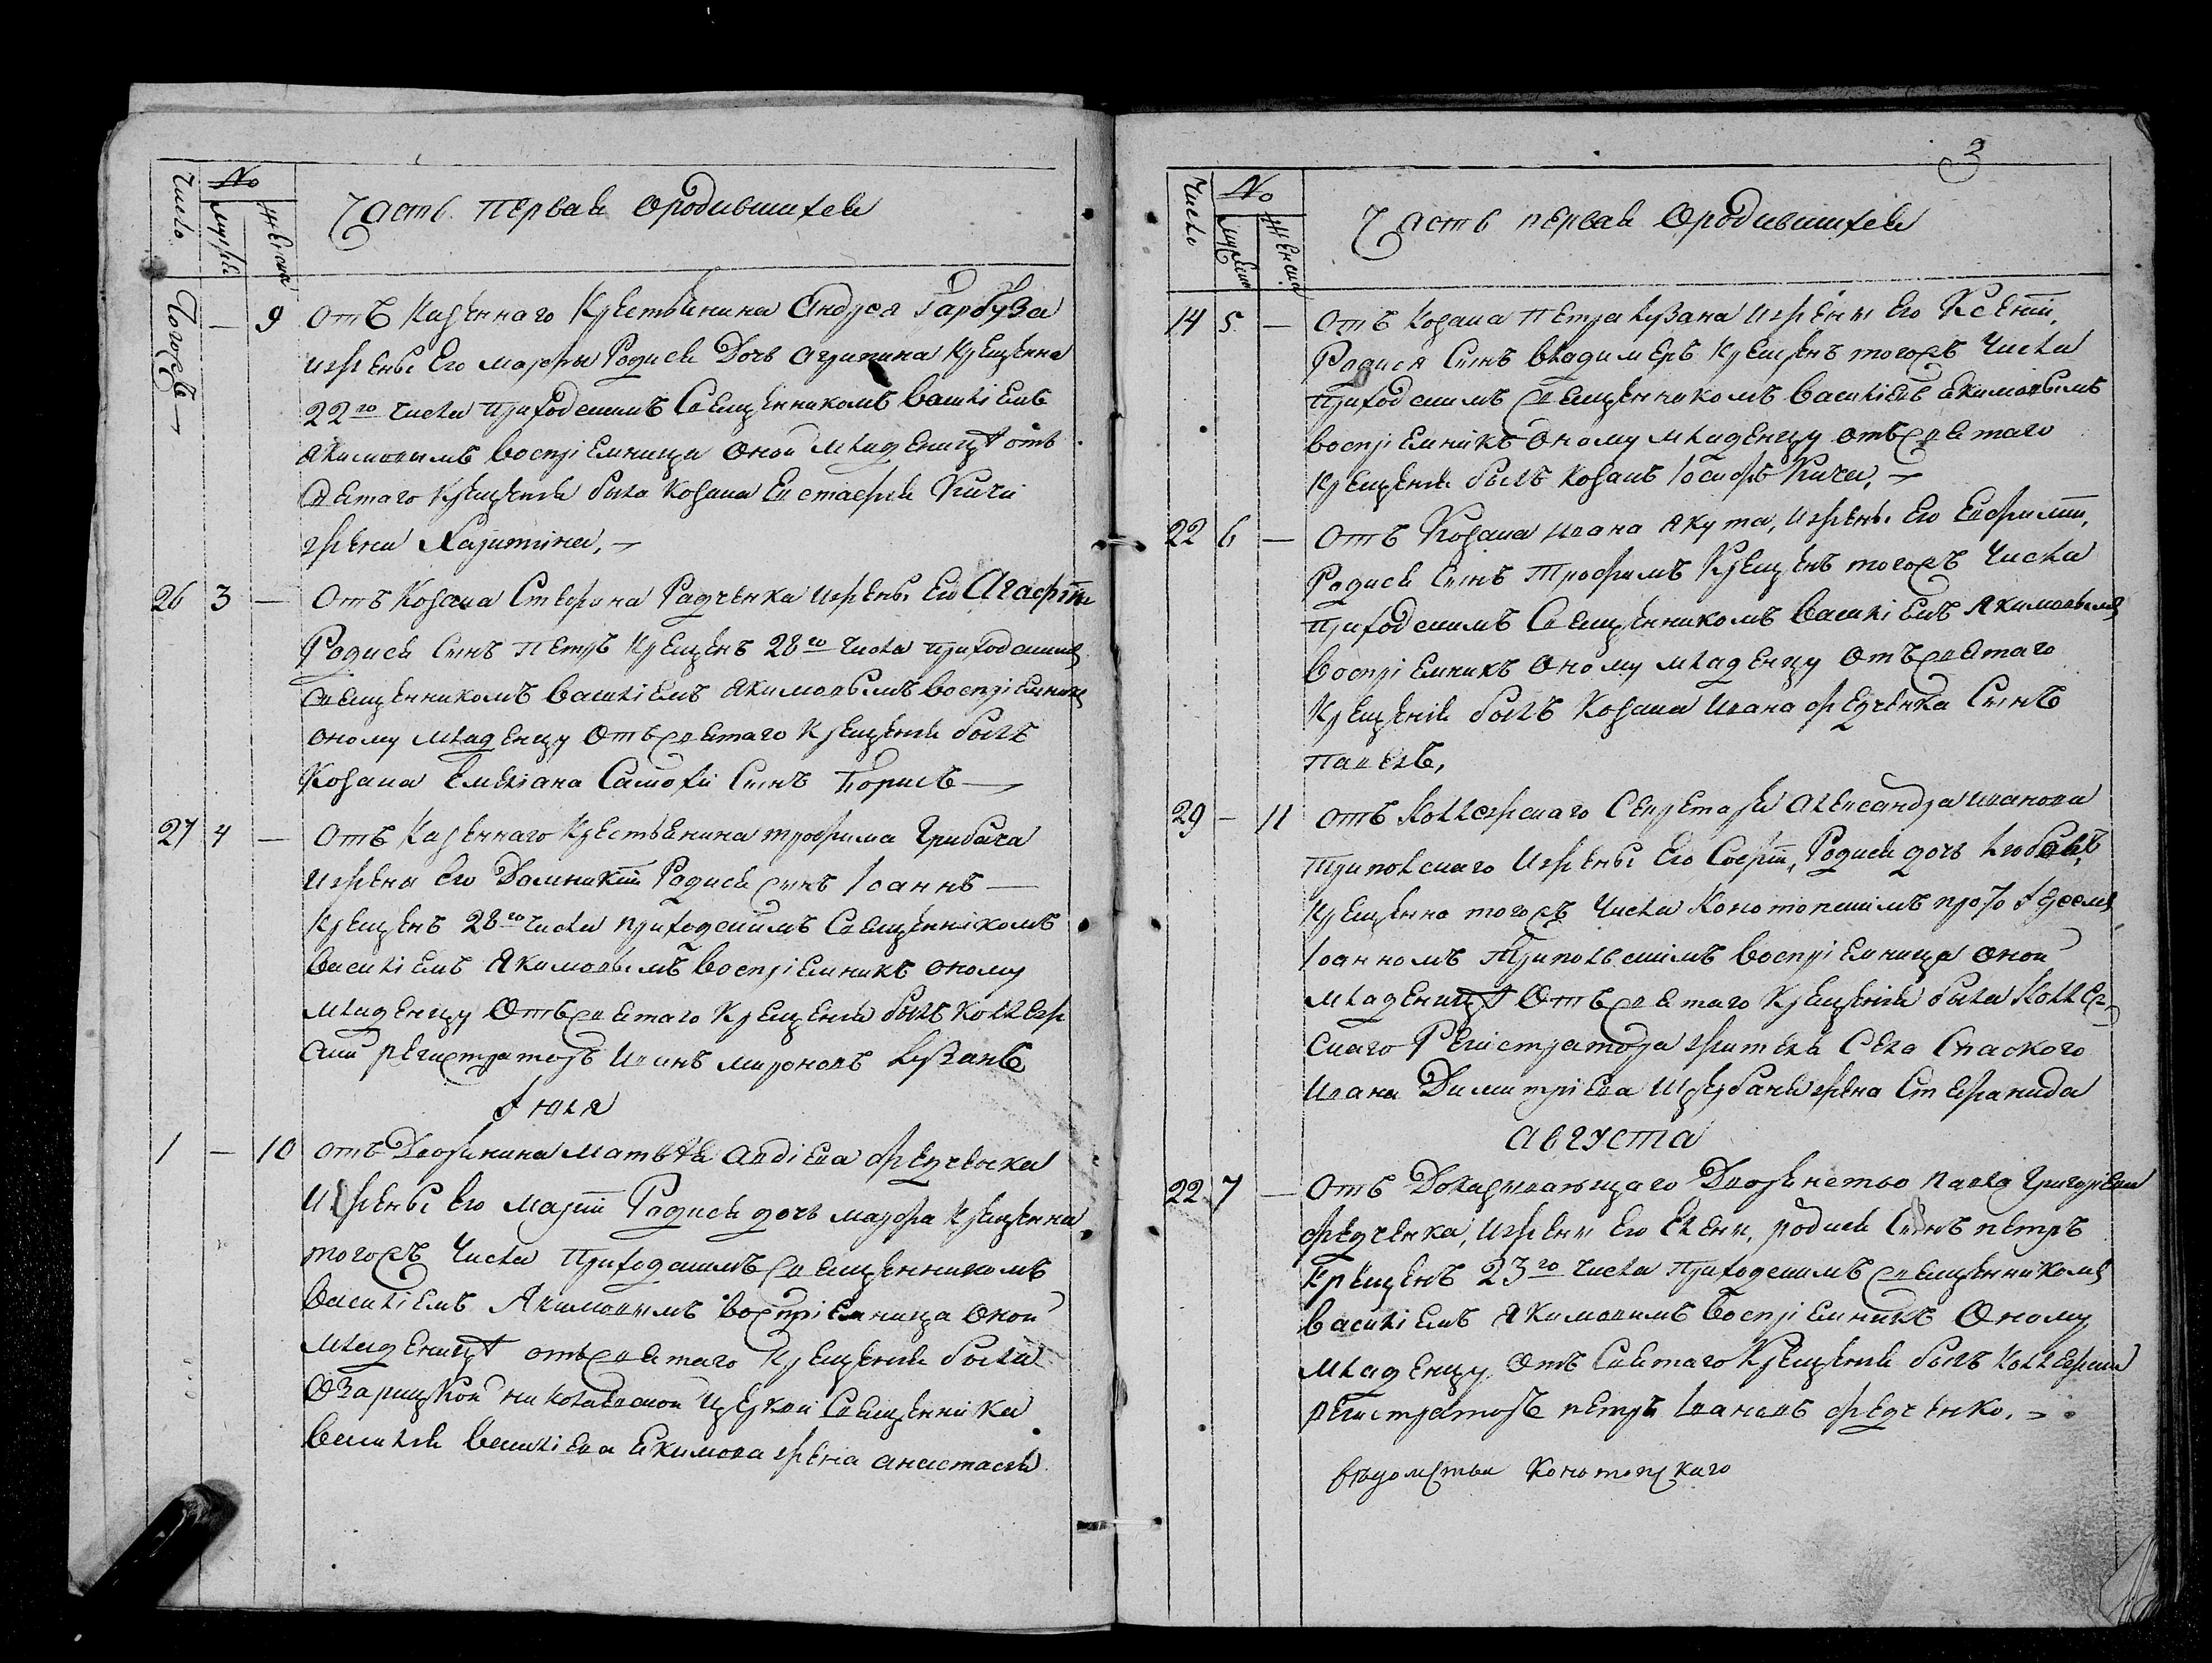 Число
№
мужеск
женска
Часть первая ородившихся
Тогожъ — 9 Отъ Казеннаго Крестьянина Андрея Гарбуза
ижены Его Марфы Родися Дочь Агрипина Крещенна
22го числа Приходскимъ Священникомъ Василіемъ
Якимовымъ воспріемница оной младеницѣ отъ
Святаго Крещенія была Козака Евстафія Кичи
жена Харитина,
26 3 — Отъ Козака Стефана Радченка ижены Его Агафіи
Родися Сынъ Петръ Крещенъ 28го числа приходским
священникомъ Василіемъ Якимовымъ воспріемникъ
оному младенцу Отъ святаго Крещенія былъ
Козака Емеліана Самохи Сынъ Борисъ
27 4 — Отъ Казеннаго Крестьянина трофима Грибача
ижены его Домникіи Родися сынъ Іоаннъ
Крещенъ 28го числа приходскимъ Священникомъ
Василіемъ Якимовымъ воспріемникъ оному
младенцу Отъ святаго Крещенія былъ Коллеж
скій регистраторъ Иванъ мироновъ Кузанъ
Іюля
1 — 10 отъ Дворянина Матвѣя Авдіева федченка
Ижены Его Маріи Родися дочь марфа Крещенна
тогожъ Числа Приходскимъ священникомъ
Василіемъ Якимовымъ воспріемница оной
младеницѣ отъ святаго Крещенія была
Озарицкой николаевской церкви Священника
Василія Василіева Екимова жена анастасія
3
Число
№
мужеск
женска
Часть первая Ородившихся
14 5 — Отъ Козака Петра Кузана ижены Его Ксеніи,
Родися Сынъ владимеръ Крещенъ тогожъ Числа
Приходскимъ священникомъ Василіемъ Екимовымъ
воспріемникъ Оному младенцу Отъ святаго
Крещенія былъ Козакъ Іосифъ Кича,
22 6 — Отъ Козака ивана Якута, Ижены Его Евфиміи,
Родися Сынъ Трофимъ Крещенъ тогожъ Числа
Приходскимъ Священникомъ Василіемъ Якимовымъ
Воспріемникъ Оному младенцу Отъ святаго
Крещенія былъ Козака Ивана федченка Сынъ
Павелъ,
29 — 11 отъ Коллежскаго Секретаря Александра иванова
Трипольскаго Ижены Его Софіи, Родися дочь Любовь,
Крещенно тогожъ Числа Конотопскимъ прото Іереемъ
Іоанномъ Трипольскимъ воспріемница оной
младеницѣ Отъ святаго Крещенія была Коллеж
скаго Регистратора жителя Села Спаского
Ивана Димитріева жена Стефанида
Августа
22 7 — Отъ Доказывающаго Дворянство Павла Григоріева
федченка, Ижены Его Елены, родися Сынъ петръ
Крещенъ 23го числа Приходскимъ священникомъ
Василіемъ Якимовымъ Воспріемникъ Оному
младенцу Отъ Святаго Крещенія былъ Коллежскій
регистраторъ петръ Ивановъ федченко.
вѣдомства Конотопскаго